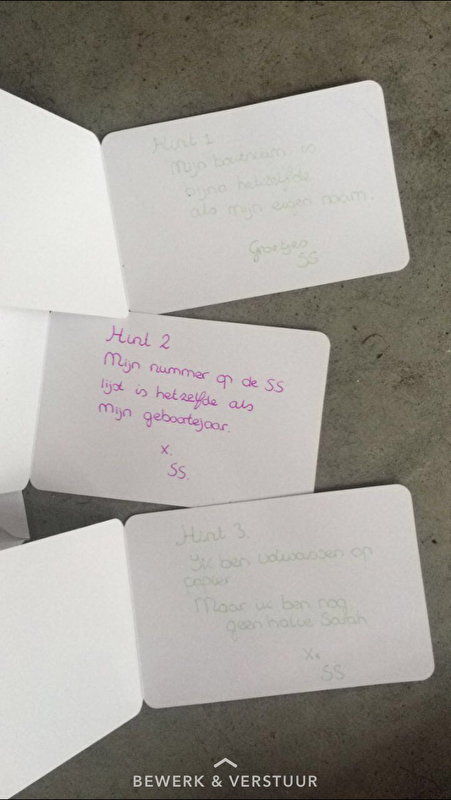 Hint 1
Mijn is
bijna hetzelfde
als mijn eigen naam.
Groetjes
SS
Hint 2
Mijn nummer op de SS
lijst is hetzelfde als
mijn geboortejaar.
x.
SS.
Hint 3.
Ik ben volwassen op
papier
Maar ik ben nog
geen halve Sarah
x.
SS
BEWERK & VERSTUUR